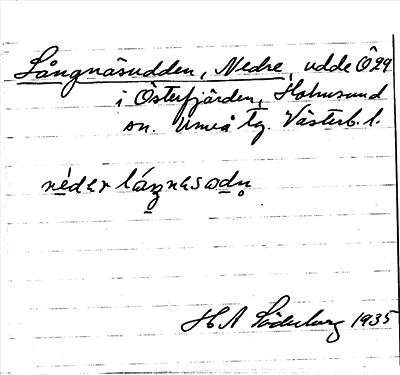 Långnäsudden, Nedre, udde Ö29
i Österfjärden, Holmsund
sn. Umeå tg. Västerb. l.
néder láŋnesodn̥
H A Söderberg 1935